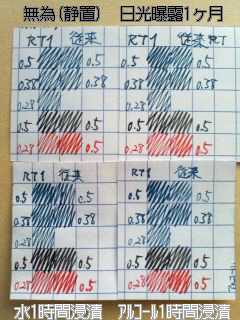 無為(静置) 日光曝露1ヶ月
RT1 従来
0.5 0.5
0.38 0.38
0.28
0.5 0.5
0.28 0.5
RT1 従来RT
0.5 0.5
0.38 0.38
0.28
0.5 0.5
0.28 0.5
RT1 従来
0.5 0.5
0.38 0.38
0.28
0.5 0.5
0.28 0.5
RT1 従来
0.5 0.5
0.38 0.38
0.28
0.5 0.5
0.28 0.5
水1時間浸漬 アルコール1時間浸漬